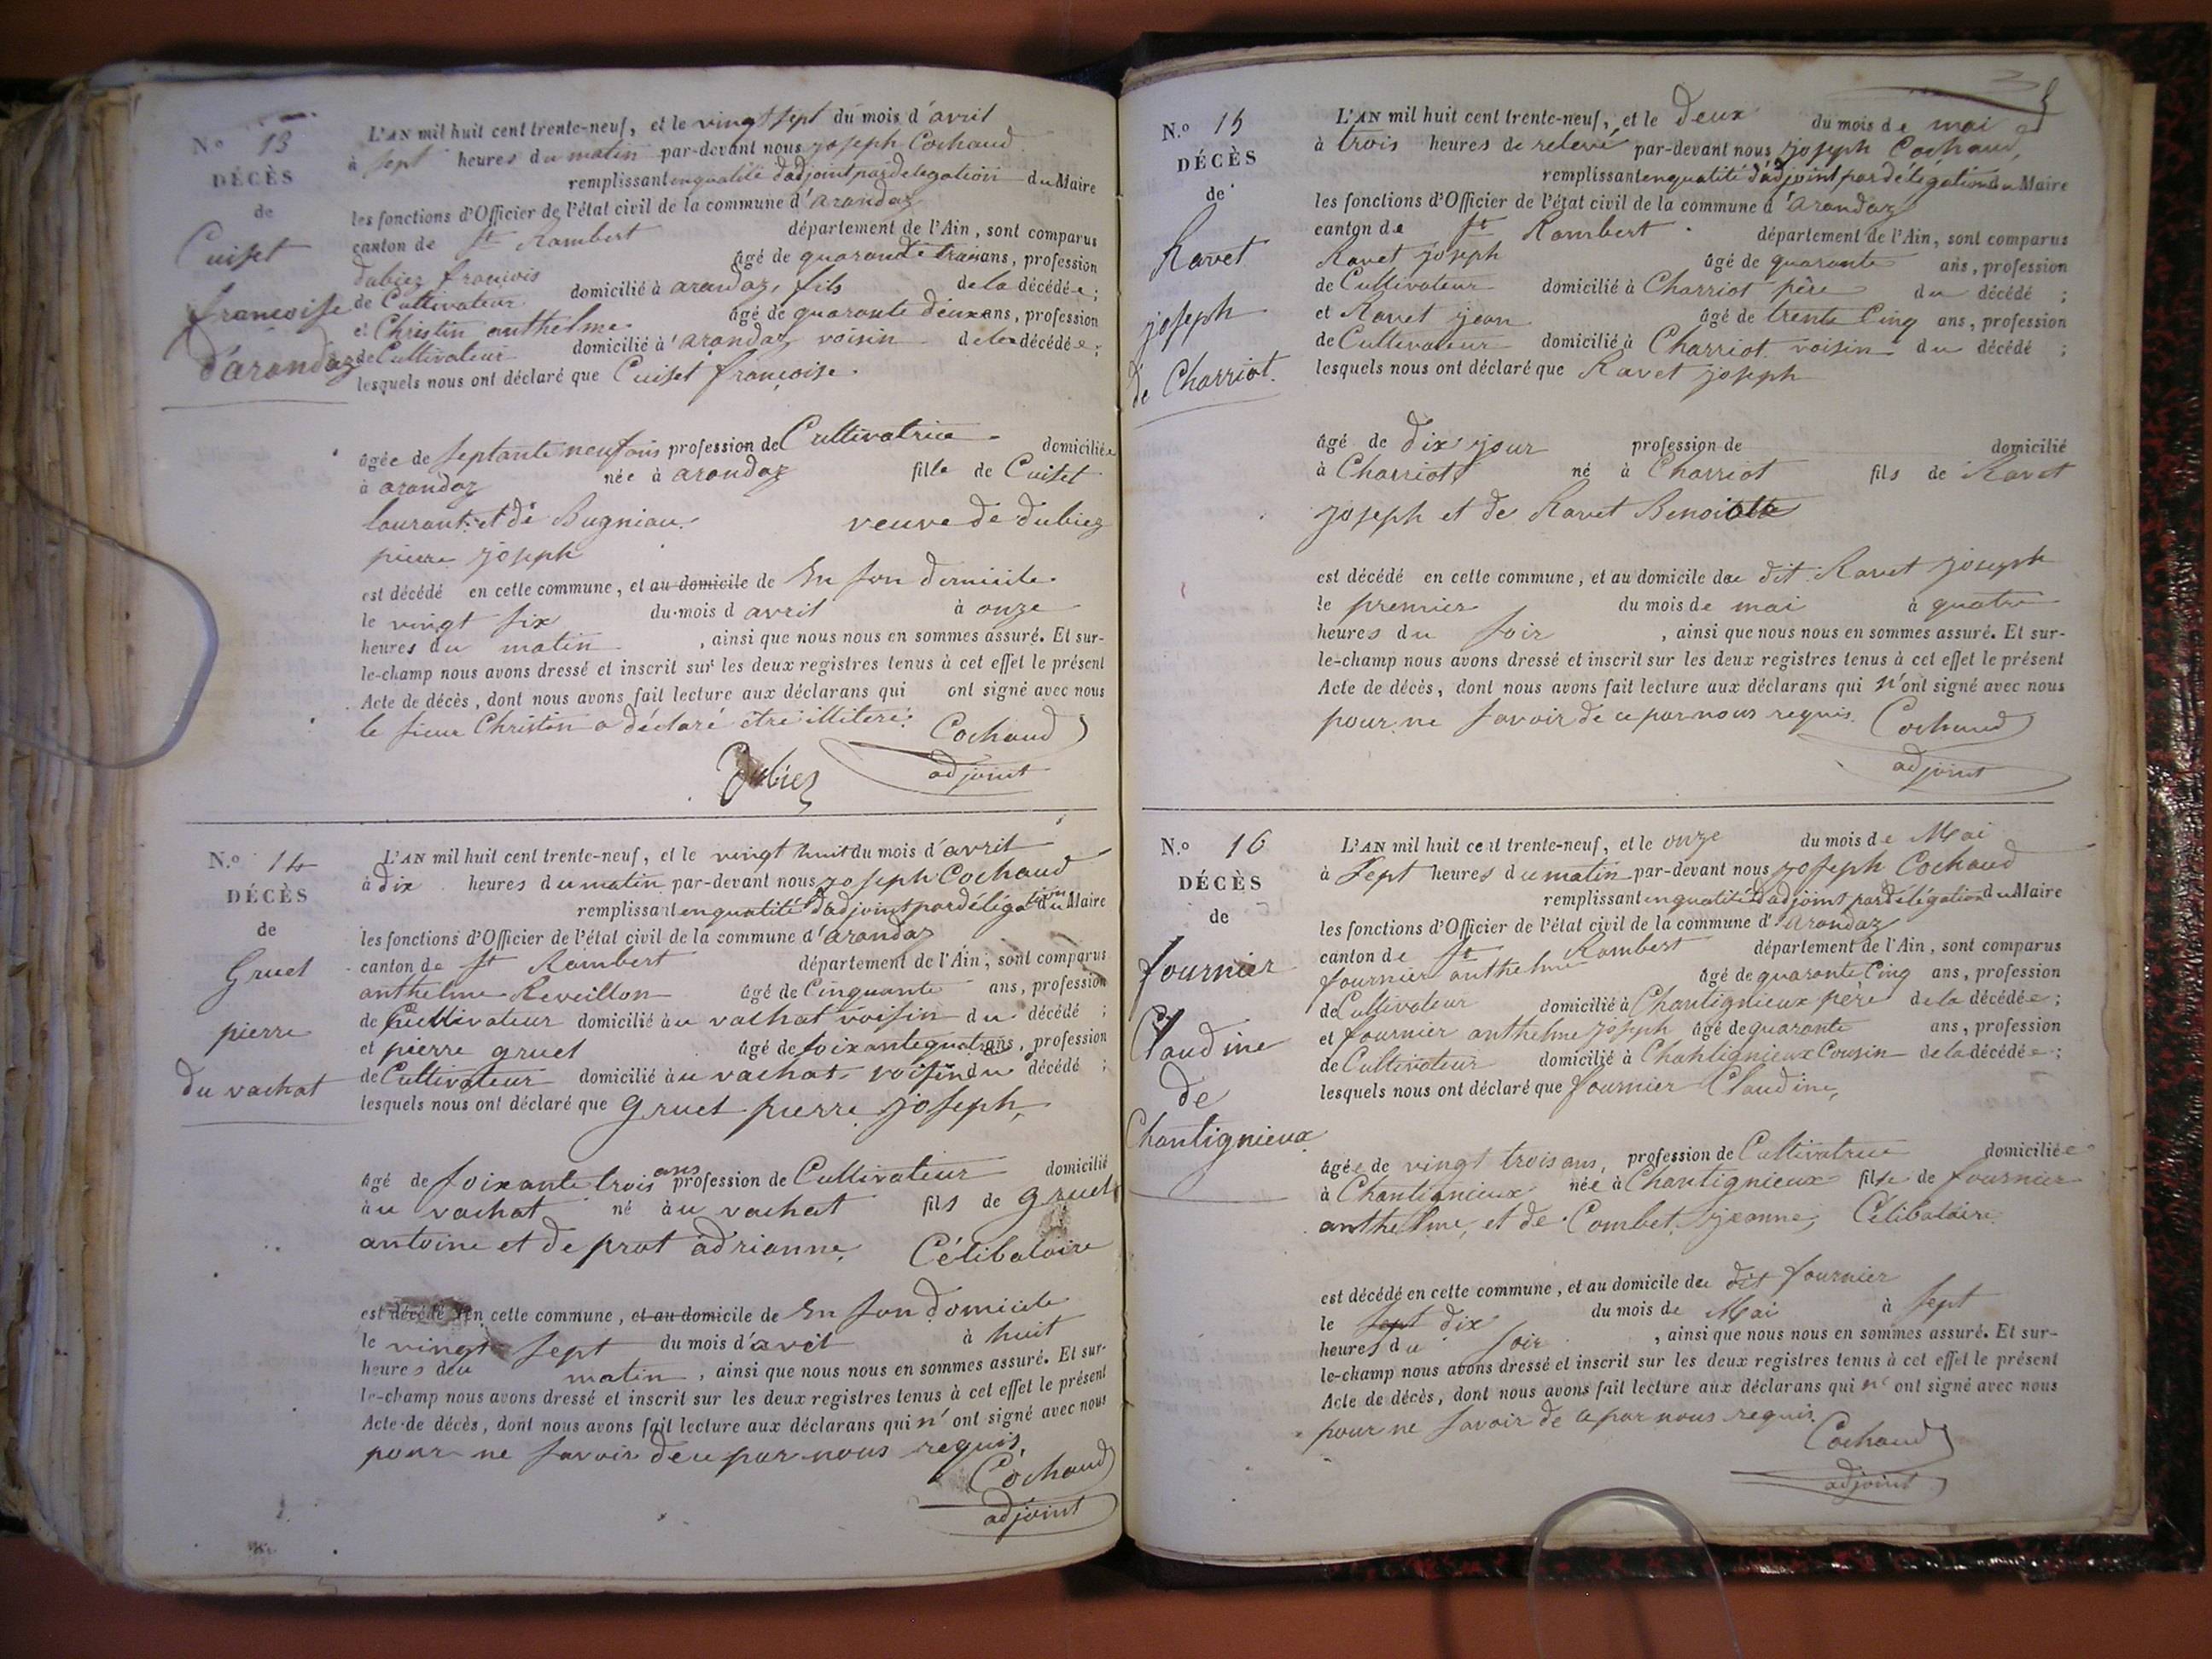 N.o 13
DÉCÈS
de
Cuiset
françoise
d'arandaz
L'AN mil huit cent trente-neuf, et le vingt sept du mois d'avril
à sept heures du matin par-devant nous joseph Cochaud
remplissant en qualité d'adjoint par delegation du Maire
les fonctions d'Officier de l'état civil de la commune d'arandaz
canton de St Rambert département de l'Ain, sont comparus
dubiez françois âgé de quarante trois ans, profession
de Cultivateur domicilié à arandaz, fils de la décédée;
et Christin anthelme âgé de quarante deux ans, profession
de Cultivateur domicilié à arandaz voisin de la décédée;
lesquels nous ont déclaré que Cuiset françoise.
âgée de septante neuf ans profession de Cultivatrice domiciliée
à arandaz née à arandaz fille de Cuiset
laurant et de Bugniau. veuve de dubiez
pierre joseph
est décédé en cette commune, et au domicile de En son domicile
le vingt six du mois d avril à onze
heures du matin, ainsi que nous nous en sommes assuré. Et sur-
le-champ nous avons dressé et inscrit sur les deux registres tenus à cet effet le présent
Acte de décès, dont nous avons fait lecture aux déclarans qui ont signé avec nous
le sieur Christin a déclaré être illiteré. Cochaud
Dubiez adjoint
N.o 14
DÉCÈS
de
Gruel
pierre
du vachat
L'AN mil huit cent trente-neuf, et le vingt huit du mois d'avril
à dix heures du matin par-devant nous joseph Cochaud
remplissant en qualité d'adjoint par délégation du Maire
les fonctions d'Officier de l'état civil de la commune d'arandaz
canton de St Rambert département de l'Ain, sont comparus
anthelme Reveillon âgé de Cinquante ans, profession
de Cultivateur domicilié au vachat voisin du décédé;
et pierre gruel âgé de soixante quatre ans, profession
de Cultivateur domicilié au vachat voisin du décédé;
lesquels nous ont déclaré que gruel pierre joseph,
âgé de soixante trois ans profession de Cultivateur domicilié
au vachat né au vachat fils de gruel
antoine et de prat adrianne, Célibataire
est décédé en cette commune, et au domicile de En son domicile
le vingt sept du mois d'avril à huit
heures du matin, ainsi que nous nous en sommes assuré. Et sur-
le-champ nous avons dressé et inscrit sur les deux registres tenus à cet effet le présent
Acte de décès, dont nous avons fait lecture aux déclarans qui n'ont signé avec nous
pour ne savoir de ce par nous requis,
Cochaud
adjoint
N.o 15
DÉCÈS
de
Ravet
joseph
de Charriot.
L'AN mil huit cent trente-neuf, et le deux du mois de mai
à trois heures de relevé par-devant nous joseph Cochaud,
remplissant en qualité d'adjoint par délégation du Maire
les fonctions d'Officier de l'état civil de la commune d'arandaz
canton de St Rambert département de l'Ain, sont comparus
Ravet joseph âgé de quarante ans, profession
de Cultivateur domicilié à Charriot père du décédé;
et Ravet jean âgé de trente Cinq ans, profession
de Cultivateur domicilié à Charriot voisin du décédé;
lesquels nous ont déclaré que Ravet joseph
âgé de dix jour profession de domicilié
à Charriot né à Charriot fils de Ravet
joseph et de Ravet Benoitte
est décédé en cette commune, et au domicile du dit Ravet joseph
le premier du mois de mai à quatre
heures du soir, ainsi que nous nous en sommes assuré. Et sur-
le-champ nous avons dressé et inscrit sur les deux registres tenus à cet effet le présent
Acte de décès, dont nous avons fait lecture aux déclarans qui n'ont signé avec nous
pour ne savoir de ce par nous requis. Cochaud
adjoint
N.o 16
DÉCÈS
de
fournier
Claudine
de
Chantignieux
L'AN mil huit cent trente-neuf, et le onze du mois de Mai
à sept heures du matin par-devant nous joseph Cochaud
remplissant en qualité d'adjoint par délégation du Maire
les fonctions d'Officier de l'état civil de la commune d'arandaz
canton de St Rambert département de l'Ain, sont comparus
fournier anthelme âgé de quarante Cinq ans, profession
de Cultivateur domicilié à Chantignieux père de la décédée;
et fournier anthelme joseph âgé de quarante ans, profession
de Cultivateur domicilié à Chantignieux Cousin de la décédée;
lesquels nous ont déclaré que fournier Claudine,
âgée de vingt trois ans, profession de Cultivatrice domiciliée
à Chantignieux née à Chantignieux fille de fournier
anthelme, et de Combet jeanne, Célibataire
est décédé en cette commune, et au domicile du dit fournier
le sept dix du mois de Mai à sept
heures du soir, ainsi que nous nous en sommes assuré. Et sur-
le-champ nous avons dressé et inscrit sur les deux registres tenus à cet effet le présent
Acte de décès, dont nous avons fait lecture aux déclarans qui n'ont signé avec nous
pour ne savoir de ce par nous requis
Cochaud
adjoint